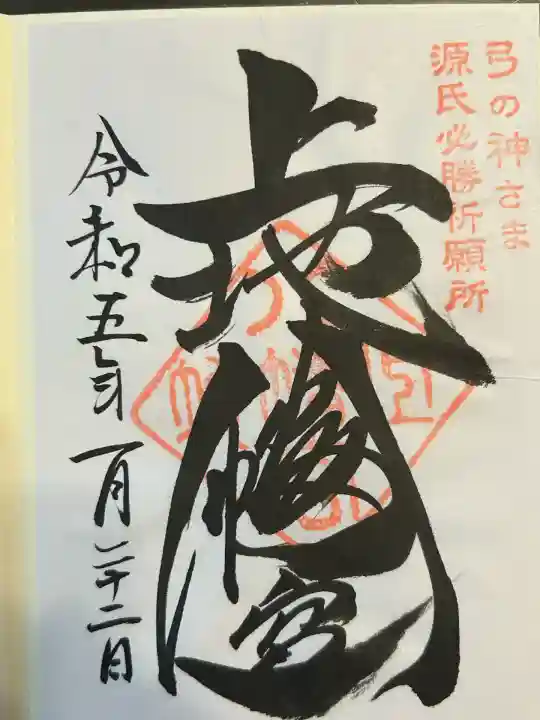 弓の神さま
源氏必勝祈願所
上地八幡宮
令和五年一月二十二日